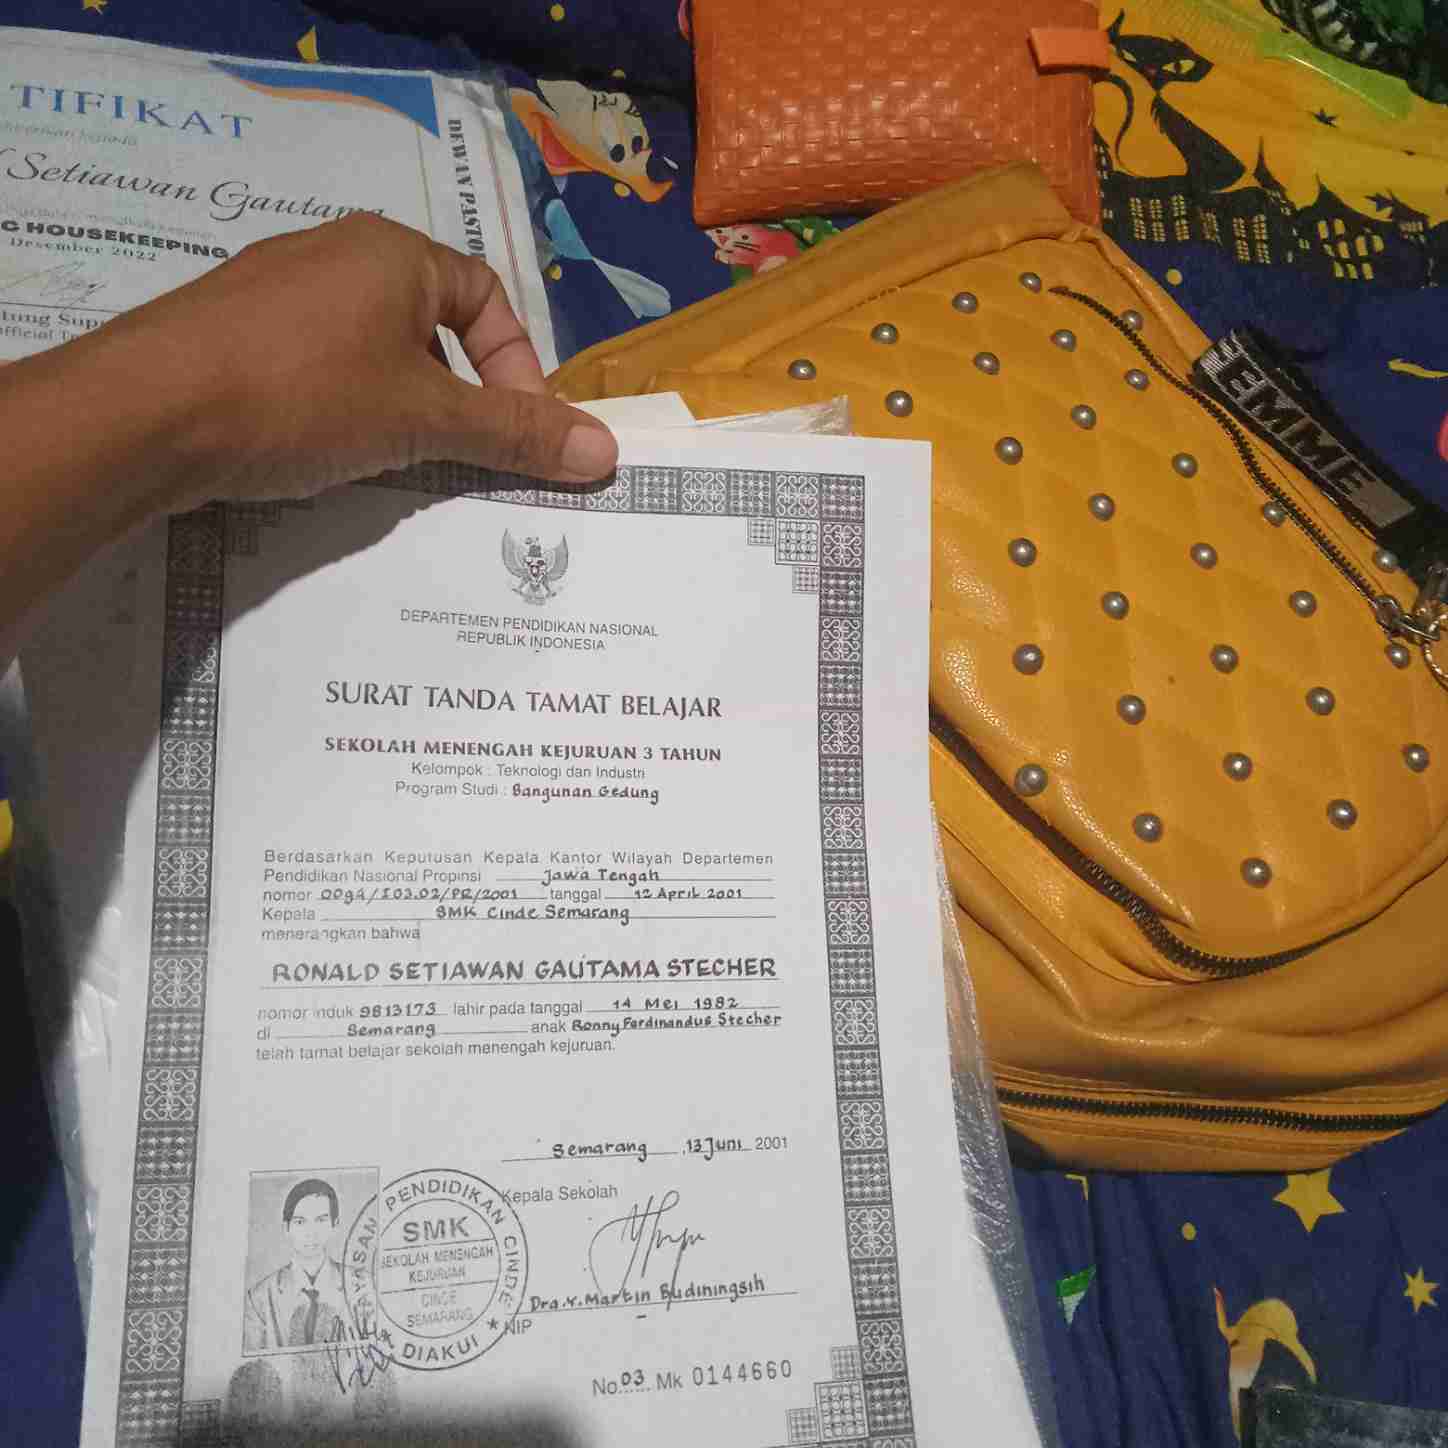 TIFIKAT
Setiawan Gautama
C HOUSEKEEPING
Desember 2022
tung Sup
DEWAN PASTO
EMME
DEPARTEMEN PENDIDIKAN NASIONAL
REPUBLIK INDONESIA
SURAT TANDA TAMAT BELAJAR
SEKOLAH MENENGAH KEJURUAN 3 TAHUN
Kelompok : Teknologi dan Industri
Program Studi : Bangunan Gedung
Berdasarkan Keputusan Kepala Kantor Wilayah Departemen
Pendidikan Nasional Propinsi Jawa Tengah
nomor /I03.02/PR/2001 tanggal 12 April 2001
Kepala SMK Cinde Semarang
menerangkan bahwa
RONALD SETIAWAN GAUTAMA STECHER
nomor induk 9813173 lahir pada tanggal 14 Mei 1982
di Semarang anak Ronny Ferdinandus Stecher
telah tamat belajar sekolah menengah kejuruan.
Semarang, 13 Juni 2001
Kepala Sekolah
YAYASAN PENDIDIKAN CINDE
SMK
SEKOLAH MENENGAH
KEJURUAN
CINDE
SEMARANG
* DIAKUI *
Dra.Y.Martin Budiningsih
NIP
No. 03 Mk 0144660